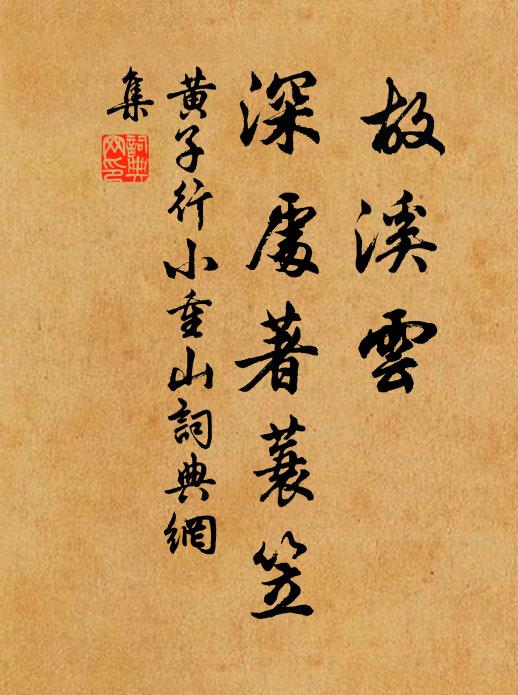 故溪雲
深處著蓑笠
黃子行小重山詞典網
集
詞典網印